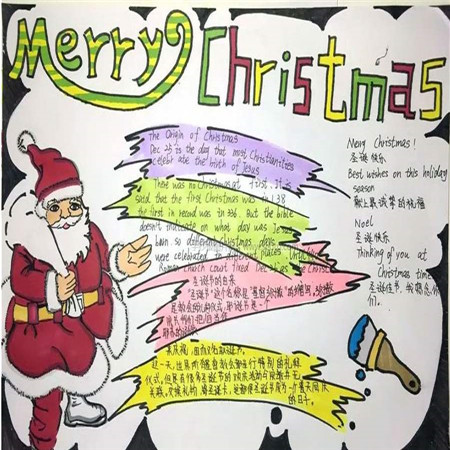 Merry Christmas
The Origin of Christmas
Dec 25 is the day that most Christianities
celebrate the birth of Jesus
There was no Christmas at first. It is
said that the first Christmas was in 138
the first in heard was in 336. But the bible
doesn't on what day was Jesus
born, so different Christmas days
were celebrated to different places. Until
Roman Church court fixed Dec as the Christ
圣诞节的由来
"圣诞节"这个名称是"基督弥撒"的缩写,弥撒
是教会的礼拜仪式,耶诞节是一个
来庆祝,因而又名耶诞节。
这一天,世界所有的基督教会都举行特别的礼拜
仪式,但是有很多圣诞节的欢庆活动与宗教并无
关联。交换礼物,寄圣诞卡,这都使圣诞节成为一个普天同庆
的日子。
Merry Christmas!
圣诞快乐
Best wishes on this holiday
season
献上最诚挚的祝福
Noel
圣诞快乐
Thinking of you at
Christmas time.
圣诞佳节,我想念你
们。